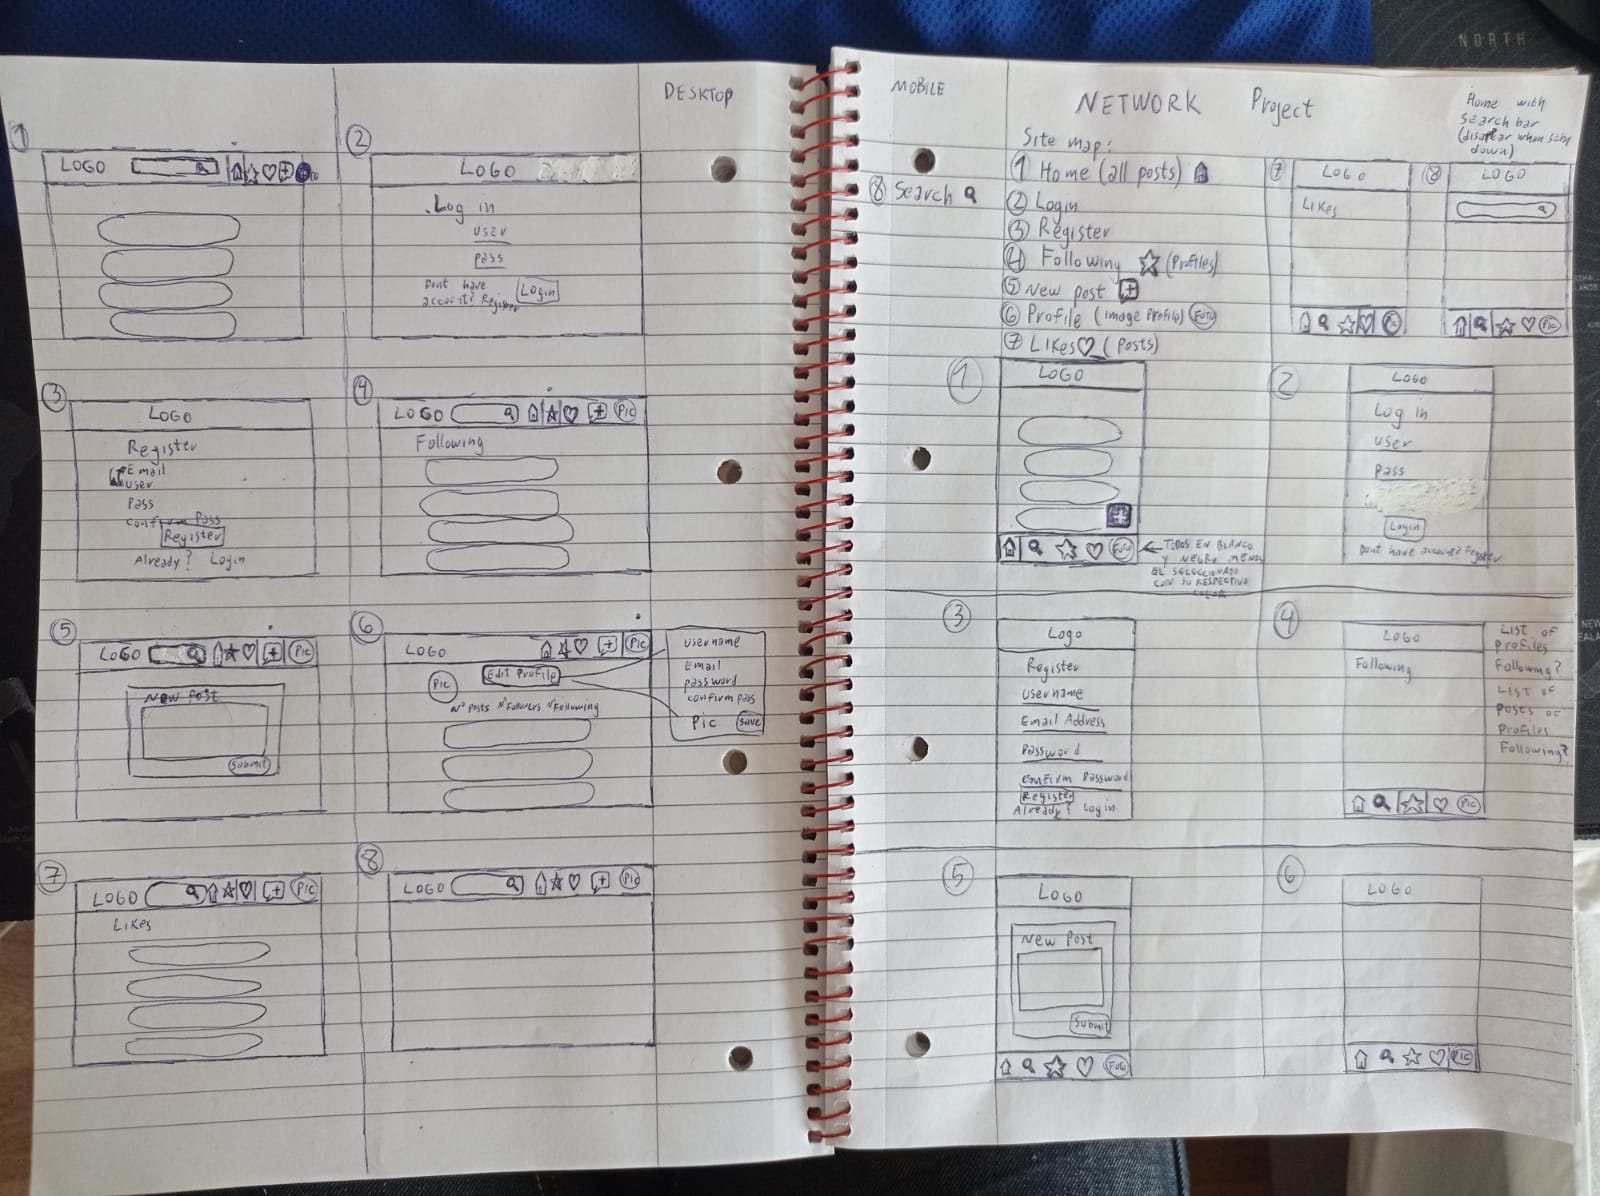 DESKTOP
1
LOGO
2
LOGO
Log in
user
pass
Dont have
account? Register
Login
3
LOGO
Register
Email
user
Pass
confirm Pass
Register
Already? Login
4
LOGO
Pic
Following
5
LOGO
Pic
New Post
Submit
6
LOGO
Pic
Edit Profile
Pic
Nº Posts Nº Followers Nº Following
username
Email
password
confirm pass
Pic
Save
7
LOGO
Pic
Likes
8
LOGO
Pic
NORTH
MOBILE
NETWORK Project
Site map:
1 Home (all posts)
8 Search
2 Login
3 Register
4 Following (Profiles)
5 New post
6 Profile (image Profile) FOTO
7 Likes (Posts)
Home with
search bar
down)
7
LOGO
Likes
Pic
8
LOGO
Pic
1
LOGO
FOTO
TODOS EN BLANCO
Y NEGRO MENOS
EL SELECCIONADO
CON SU RESPECTIVO
COLOR
2
LOGO
Log in
user
Pass
Login
Dont have account? Register
3
Logo
Register
username
Email Address
Password
Confirm Password
Register
Already? Login
4
LOGO
Following
Pic
List of
profiles
Following?
List of
Posts of
Profiles
Following?
5
LOGO
New Post
Submit
FOTO
6
LOGO
Pic